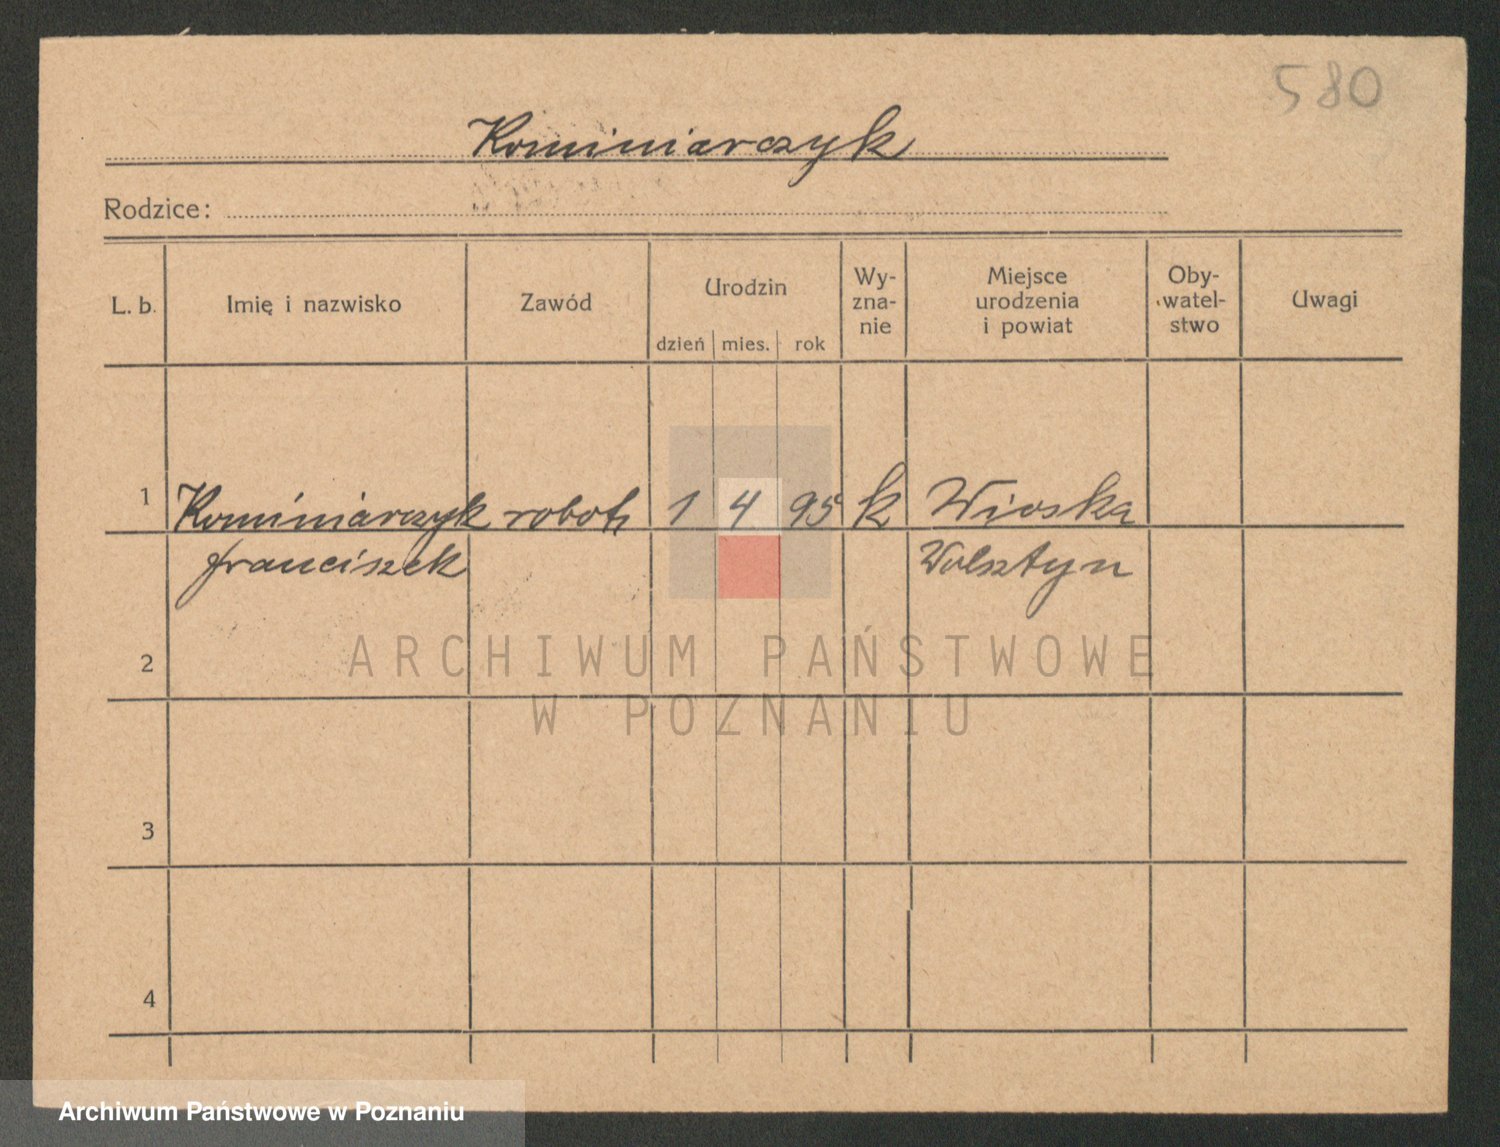 580
Kominiarczyk
Rodzice:
L. b. Imię i nazwisko Zawód Urodzin dzień mies. rok Wy- zna- nie Miejsce urodzenia i powiat Oby- watel- stwo Uwagi
1 Kominiarczyk robotn 1 4 95 k Wioska
Franciszek Wolsztyn
2
3
4
ARCHIWUM PAŃSTWOWE
W POZNANIU
Archiwum Państwowe w Poznaniu